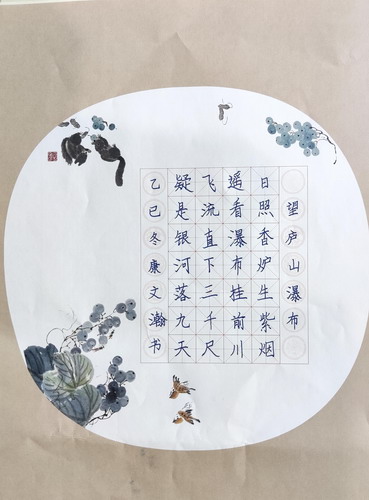 望庐山瀑布
日照香炉生紫烟
遥看瀑布挂前川
飞流直下三千尺
疑是银河落九天
乙巳冬廉文瀚书